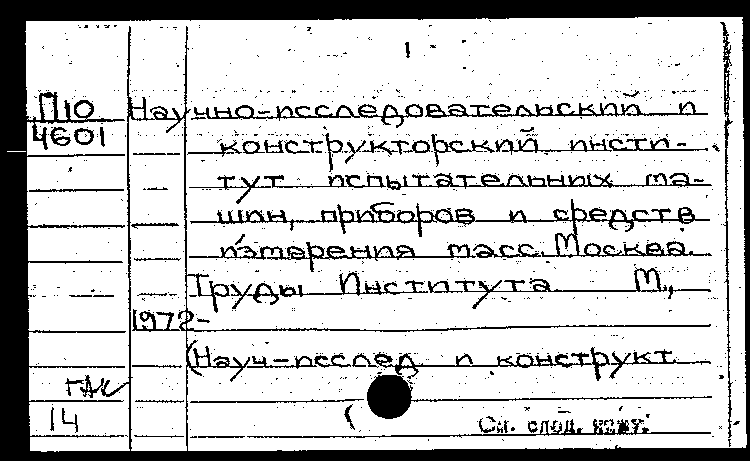 П10 Научно-исследовательский и
4601 конструкторский инсти-
тут испытательных ма-
шин, приборов и средств
измерения масс. Москва.
Труды Института М.,
1972-
(Науч-исслед и конструкт
ГАК
14
См. след. карт.